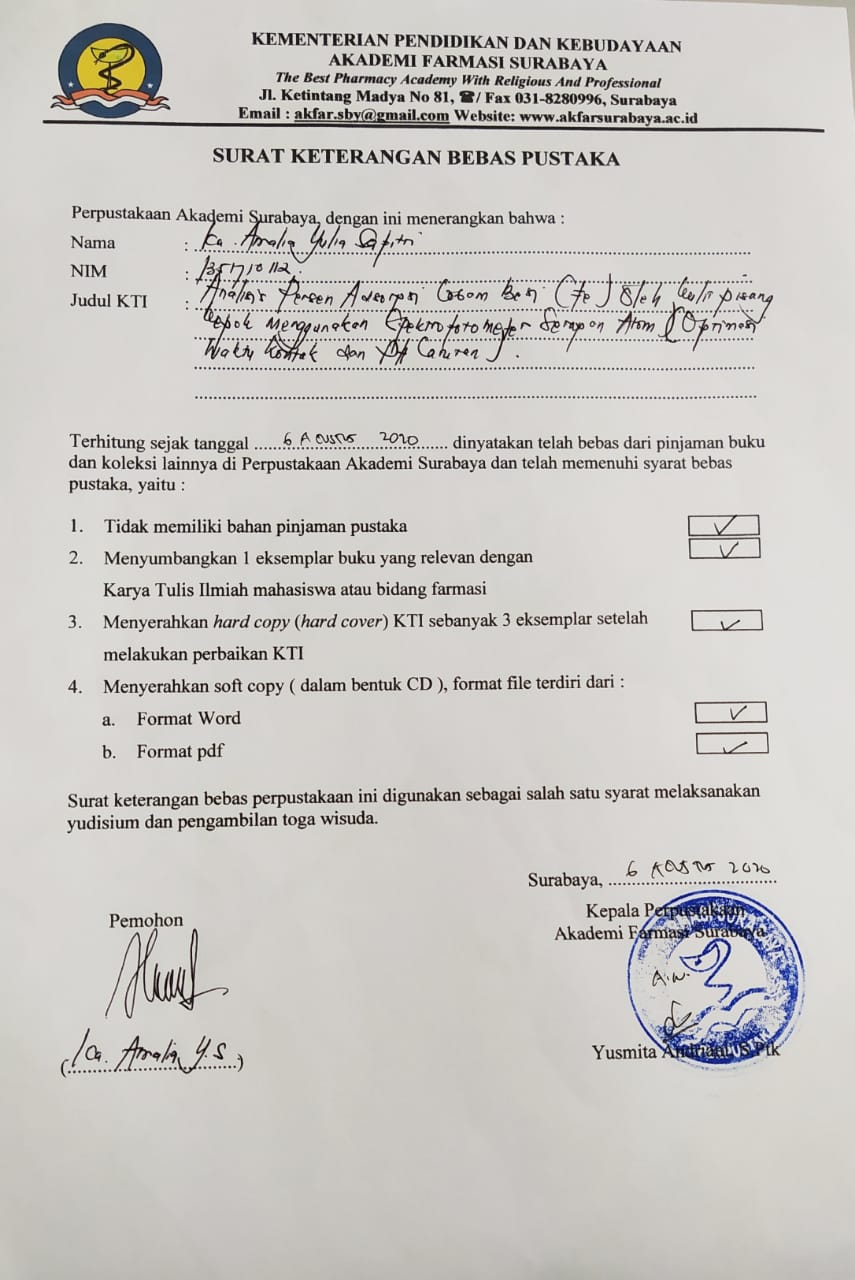 KEMENTERIAN PENDIDIKAN DAN KEBUDAYAAN
AKADEMI FARMASI SURABAYA
The Best Pharmacy Academy With Religious And Professional
Jl. Ketintang Madya No 81, ☎/ Fax 031-8280996, Surabaya
Email : akfar.sby@gmail.com Website: www.akfarsurabaya.ac.id
SURAT KETERANGAN BEBAS PUSTAKA
Perpustakaan Akademi Surabaya, dengan ini menerangkan bahwa :
Nama : Ica Amalia Yulia Safitri
NIM :
Judul KTI : Analisis Persen Adsorpsi Logam Besi (Fe) Oleh Kulit Pisang
Kepok Menggunakan Spektrofotometer Serapan Atom (Optimasi
Waktu Kontak dan pH Cairan).
Terhitung sejak tanggal 6 Agustus 2020 dinyatakan telah bebas dari pinjaman buku
dan koleksi lainnya di Perpustakaan Akademi Surabaya dan telah memenuhi syarat bebas
pustaka, yaitu :
1. Tidak memiliki bahan pinjaman pustaka ✓
2. Menyumbangkan 1 eksemplar buku yang relevan dengan ✓
Karya Tulis Ilmiah mahasiswa atau bidang farmasi
3. Menyerahkan hard copy (hard cover) KTI sebanyak 3 eksemplar setelah ✓
melakukan perbaikan KTI
4. Menyerahkan soft copy ( dalam bentuk CD ), format file terdiri dari :
a. Format Word ✓
b. Format pdf ✓
Surat keterangan bebas perpustakaan ini digunakan sebagai salah satu syarat melaksanakan
yudisium dan pengambilan toga wisuda.
Surabaya, 6 Agustus 2020
Pemohon
Kepala Perpustakaan
Akademi Farmasi Surabaya
a.n.
(Ica Amalia Y.S)
Yusmita Andriani, S.Ptk